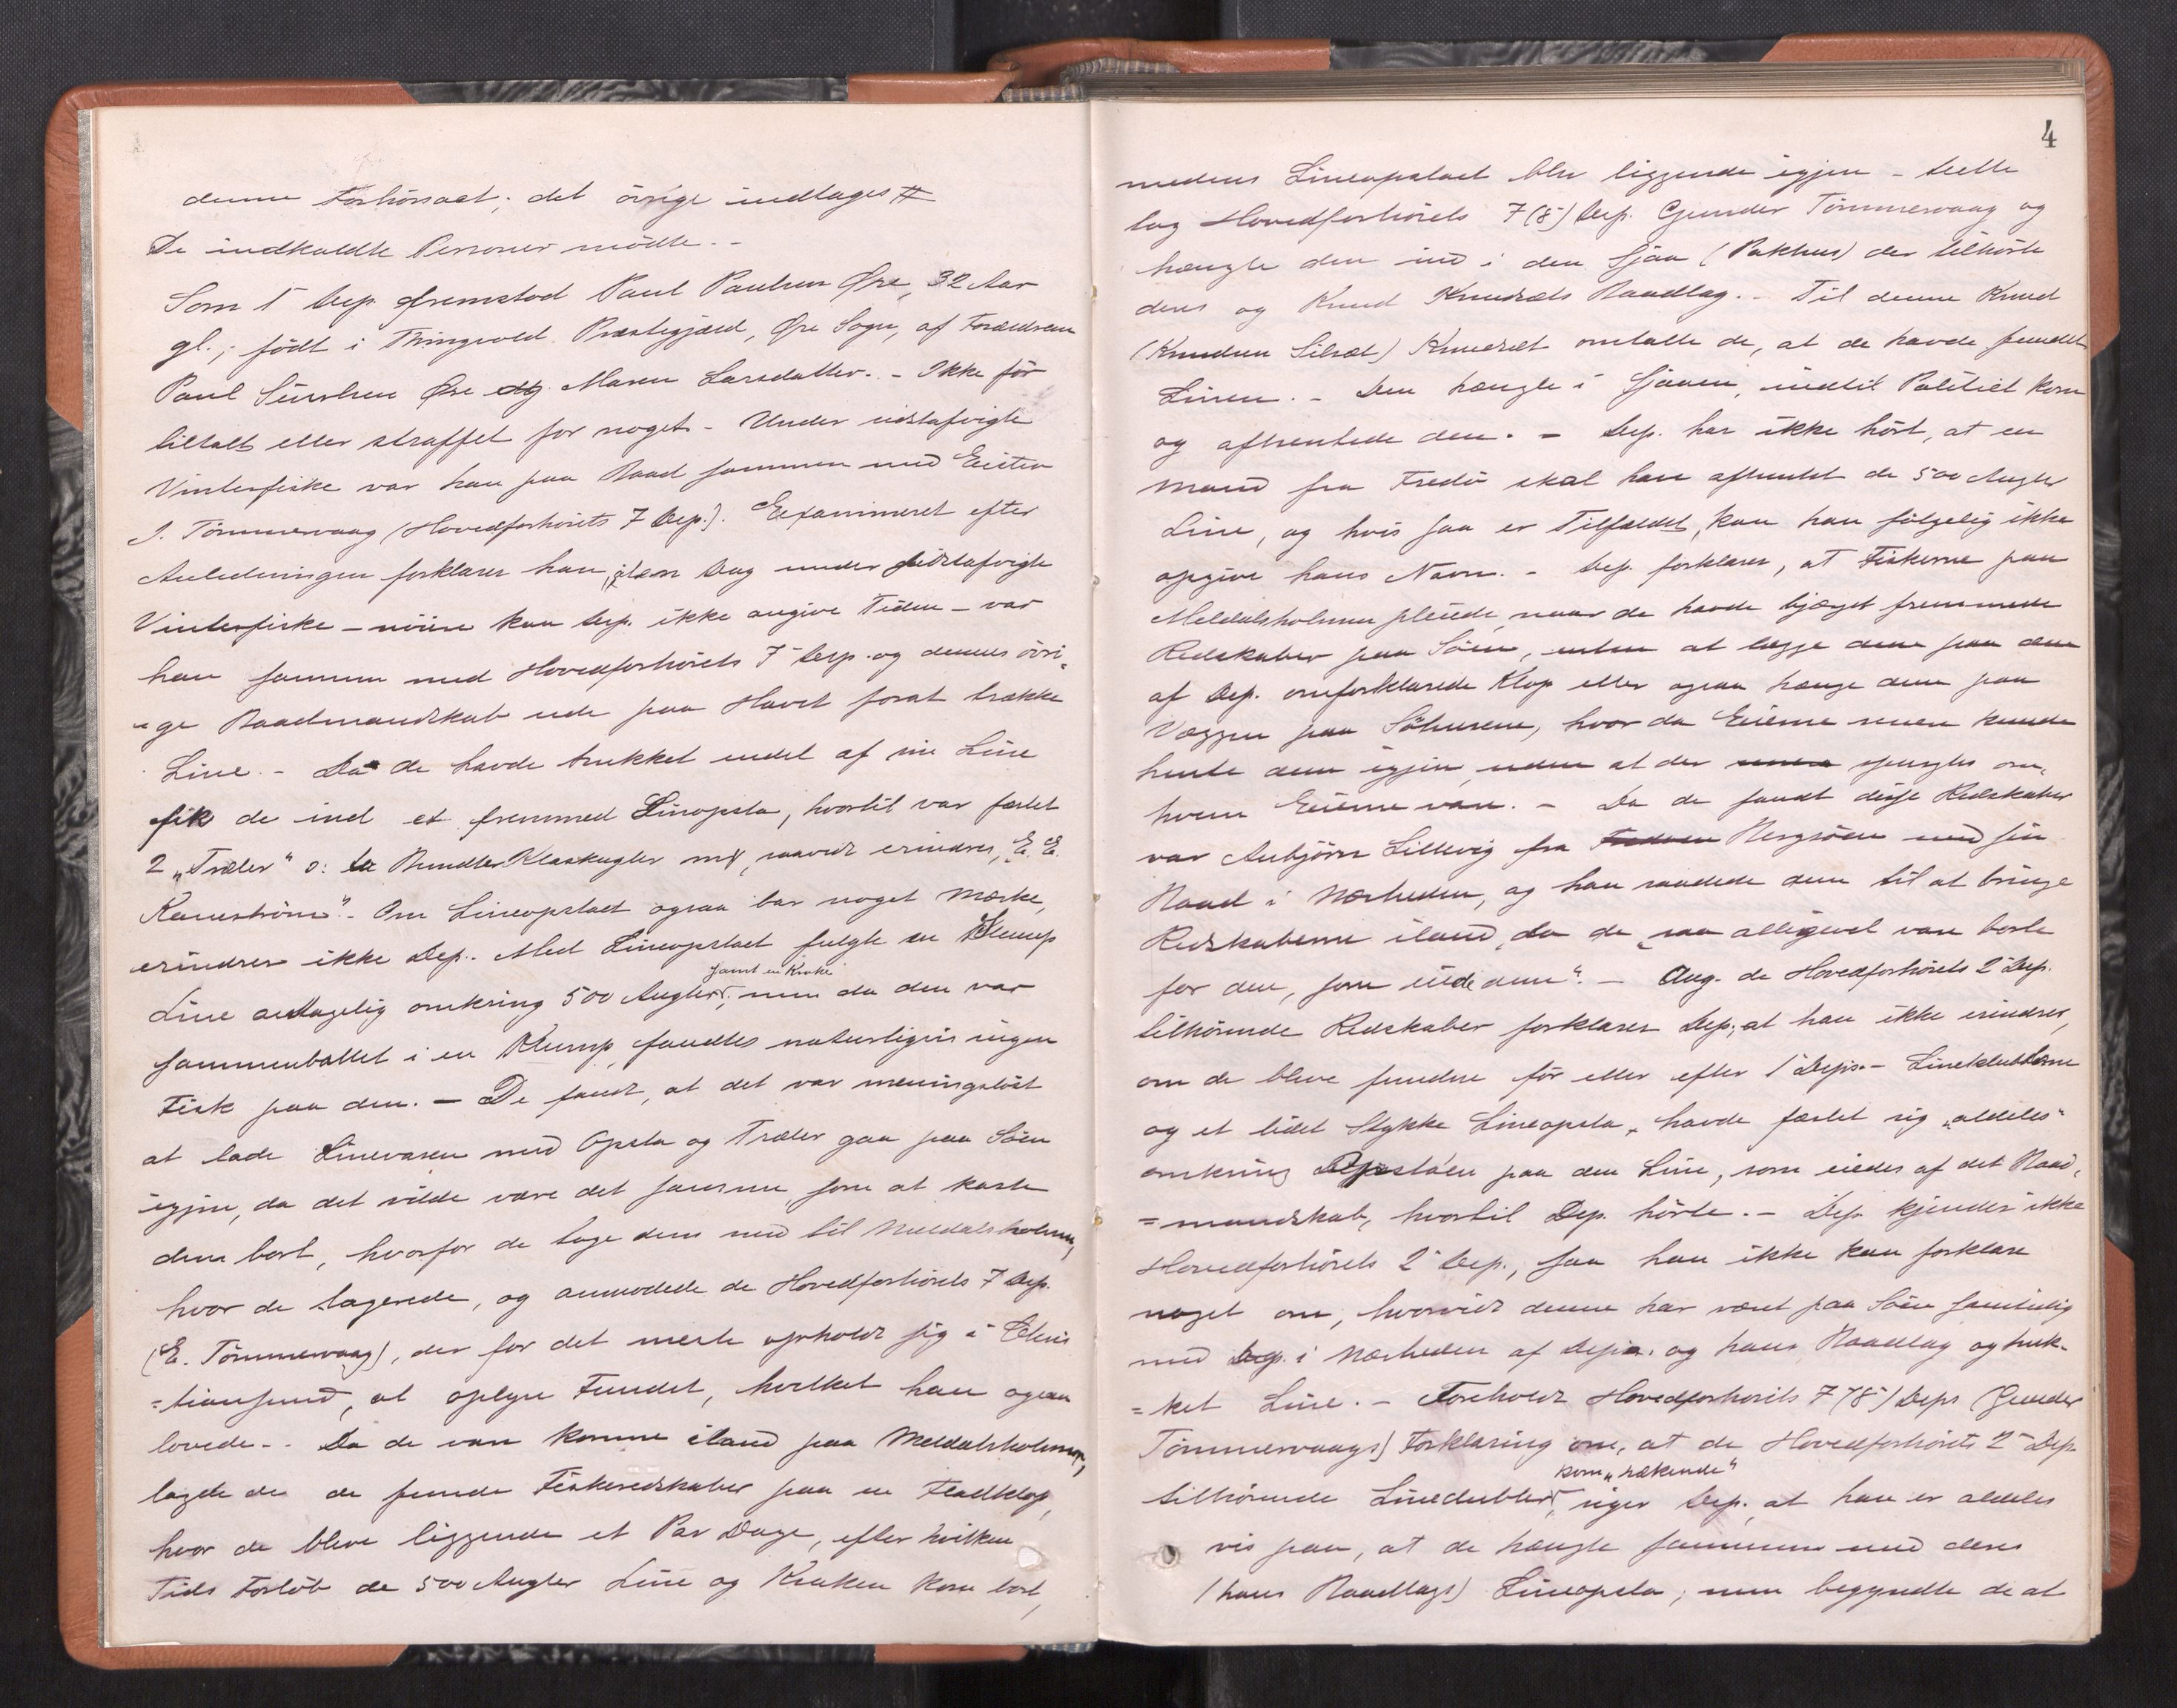 denne Forhörsact; det övrige indtages #
De indkaldte Personer mödte. -
Som 1ˢ Dep. fremstod Paul Paulsen Øre, 32 Aar
gl.; födt i Thingvold Præstegjæld, Øre Sogn, af Forældrene
Paul Sivertsen Øre og Maren Larsdatter. - Ikke för
tiltalt eller straffet for noget. - Under sidstafvigte
Vinterfiske var han paa Baad sammen med Eusten
J. Tömmervaag (Hovedforhörets 7 Dep.). Examineret efter
Anledningen forklarer han; en Dag under sidstafvigte
Vinterfiske - nöiere kan Dep. ikke angive Tiden - var
han sammen med Hovedforhörets 7 Dep. og dennes övri=
=ge Baadmandskab ude paa Havet forat trække
Line. - Da de havde trukket endel af sin Line
fik de ind et fremmed Lineopsta, hvortil var fæstet
2 „Træler" ɔ: to Bundter Klaskugler mrk., saavidt erindres, „E. E.
Ramström". - Om Lineopstaet ogsaa bar noget Mærke,
erindrer ikke Dep. Med Lineopstaet fulgte en Klump
samt en Krake
Line antagelig omkring 500 Angler; men da den var
sammenballet i en Klump, fandtes naturligvis ingen
Fisk paa den. - De fandt, at det var meningslöst
at lade Linevasen med Opsta og Træler gaa paa Söen
igjen, da det vilde være det samme, som at kaste
dem bort, hvorfor de toge dem med til Meldalsholmen,
hvor de lagerede, og anmodede de Hovedforhörets 7 Dep.
(E. Tömmervaag), der for det meste opholdt sig i Chris
=tiansund, at oplyse Fundet, hvilket han ogsaa
lovede. - Da de vare komne iland paa Meldalsholmen,
lagde de de fundne Fiskeredskaber paa en Fladklop,
hvor de bleve liggende et Par Dage, efter hvilken
Tids Forlöb de 500 Angler Line og Kraken kom bort,
4
medens Lineopstaet blev liggende igjen - dette
tog Hovedforhörets 7 (8) Dep. Gunder Tömmervaag og
hængte den ind i den Sjaa (Pakhus) der tilhörte
deres og Knud Knudsæts Baadlag. - Til denne Knud
(Knudsen Silsæt) Knudsæt omtalte de, at de havde fundet
Linen. - Den hængte i Sjaaen, indtil Politiet kom
og afhentede den. - Dep. har ikke hört, at en
Mand fra Fredö skal have afhentet de 500 Angler
Line, og hvis saa er Tilfældet, kan han fölgelig ikke
opgive hans Navn. - Dep. forklarer, at Fiskerne paa
Meldalsholmen pleiede, naar de havde bjærget fremmede
Redskaber paa Söen, enten at lægge dem paa den
af Dep. omforklarede Klop eller ogsaa hænge dem paa
Væggen paa Söhusene, hvor da Eierne kunde
hente dem igjen, uden at der spurgtes om,
hvem Eierne vare. - Da de fandt disse Redskaber
var Anbjörn Lillevig fra Bergsöen med sin
Baad i Nærheden, og han raadede dem til at bringe
Redskaberne iland, da de „saa alligevel vare borte
for den, som eiede dem". - Ang. de Hovedforhörets 2ᵈ Dep.
tilhörende Redskaber forklarer Dep., at han ikke erindrer,
om de bleve fundne för eller efter 1ˢ Deps. - Lineklubberne
og et lidet Stykke Lineopsta, havde fæstet sig „aldeles"
omkring Opstaen paa den Line, som eiedes af det Baad,
=mandskab, hvortil Dep. hörte. - Dep. kjender ikke
Hovedforhörets 2ᵈ Dep., saa han ikke kan forklare
noget om, hvorvidt denne har været paa Söen samtidig
med Dep. i Nærheden af Dep. og hans Baadlag og truk-
=ket Line. - Foreholdt Hovedforhörets 7 (8) Deps (Gunder
Tömmervaags) Forklaring om, at de Hovedforhörets 2ᵈ Dep.
kom „rækende"
tilhörende Linedubler, siger Dep., at han er aldeles
vis paa, at de hængte sammen med deres
(hans Baadlags) Lineopsta; men begyndte de at